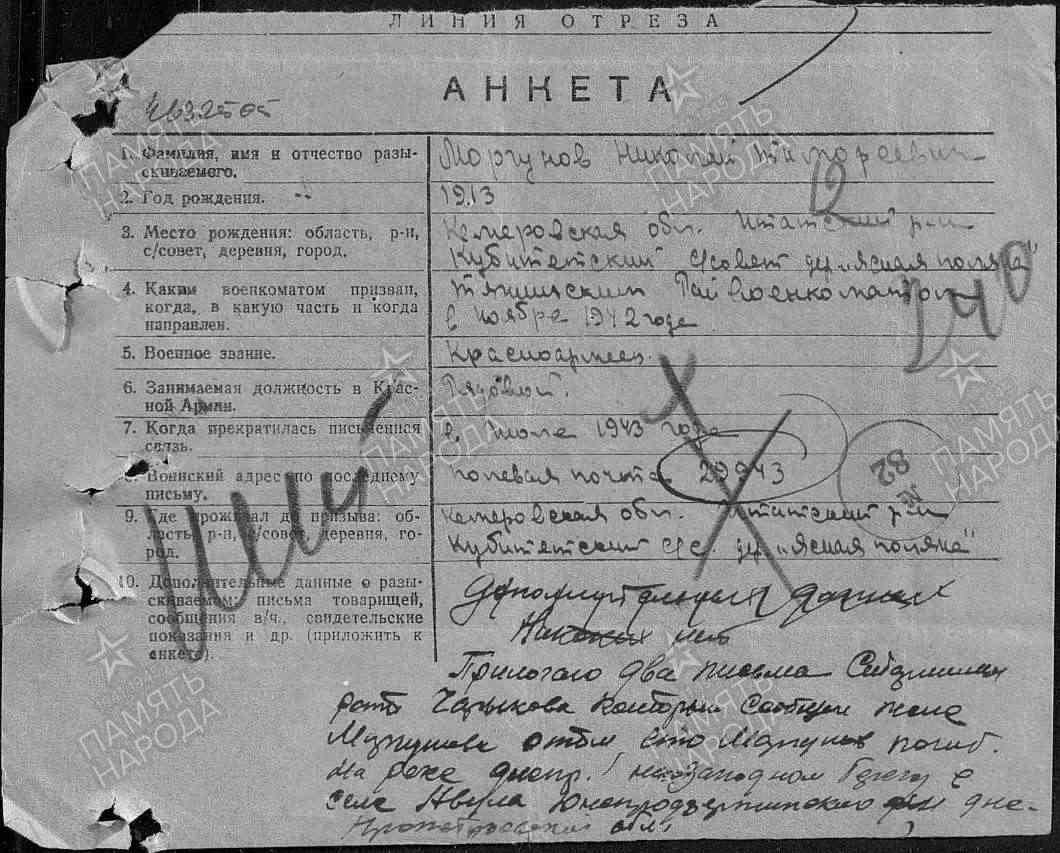 ЛИНИЯ ОТРЕЗА
АНКЕТА
1. Фамилия, имя и отчество разы-
скиваемого.
Моргунов Николай
2. Год рождения.
1913
3. Место рождения: область, р-н,
с/совет, деревня, город.
Кемеровская обл. Итатский р-н
Кубитетский с/совет дер. „Ясная поляна"
4. Каким военкоматом призван,
когда, в какую часть и когда
направлен.
Тяжинским Райвоенкоматом
в ноябре 1942 года
140
5. Военное звание.
Красноармеец.
6. Занимаемая должность в Крас-
ной Армии.
Рядовой.
7. Когда прекратилась письменная
связь.
в 1943 года
8. Воинский адрес по последнему
письму.
полевая почта 29943
№ 82
9. Где проживал до призыва: об-
ласть, р-н, с/совет, деревня, го-
род.
Кемеровская обл. Итатский р-н
Кубитетский с/с. дер. „Ясная поляна"
10. Дополнительные данные о разы-
скиваемом: письма товарищей,
сообщения в/ч., свидетельские
показания и др. (приложить к
анкете).
Дополнительных данных
Никаких нет
Прилогаю два письма
сообщил жене
о том что Моргунов погиб.
На реке Днепр. на западном берегу
селе Днепродзержинского дне-
пропетровской обл.
ПАМЯТЬ
НАРОДА
ПАМЯТЬ
НАРОДА
ПАМЯТЬ
НАРОДА
ПАМЯТЬ
НАРОДА
ПАМЯТЬ
НАРОДА
ПАМЯТЬ
НАРОДА
ПАМЯТЬ
НАРОДА